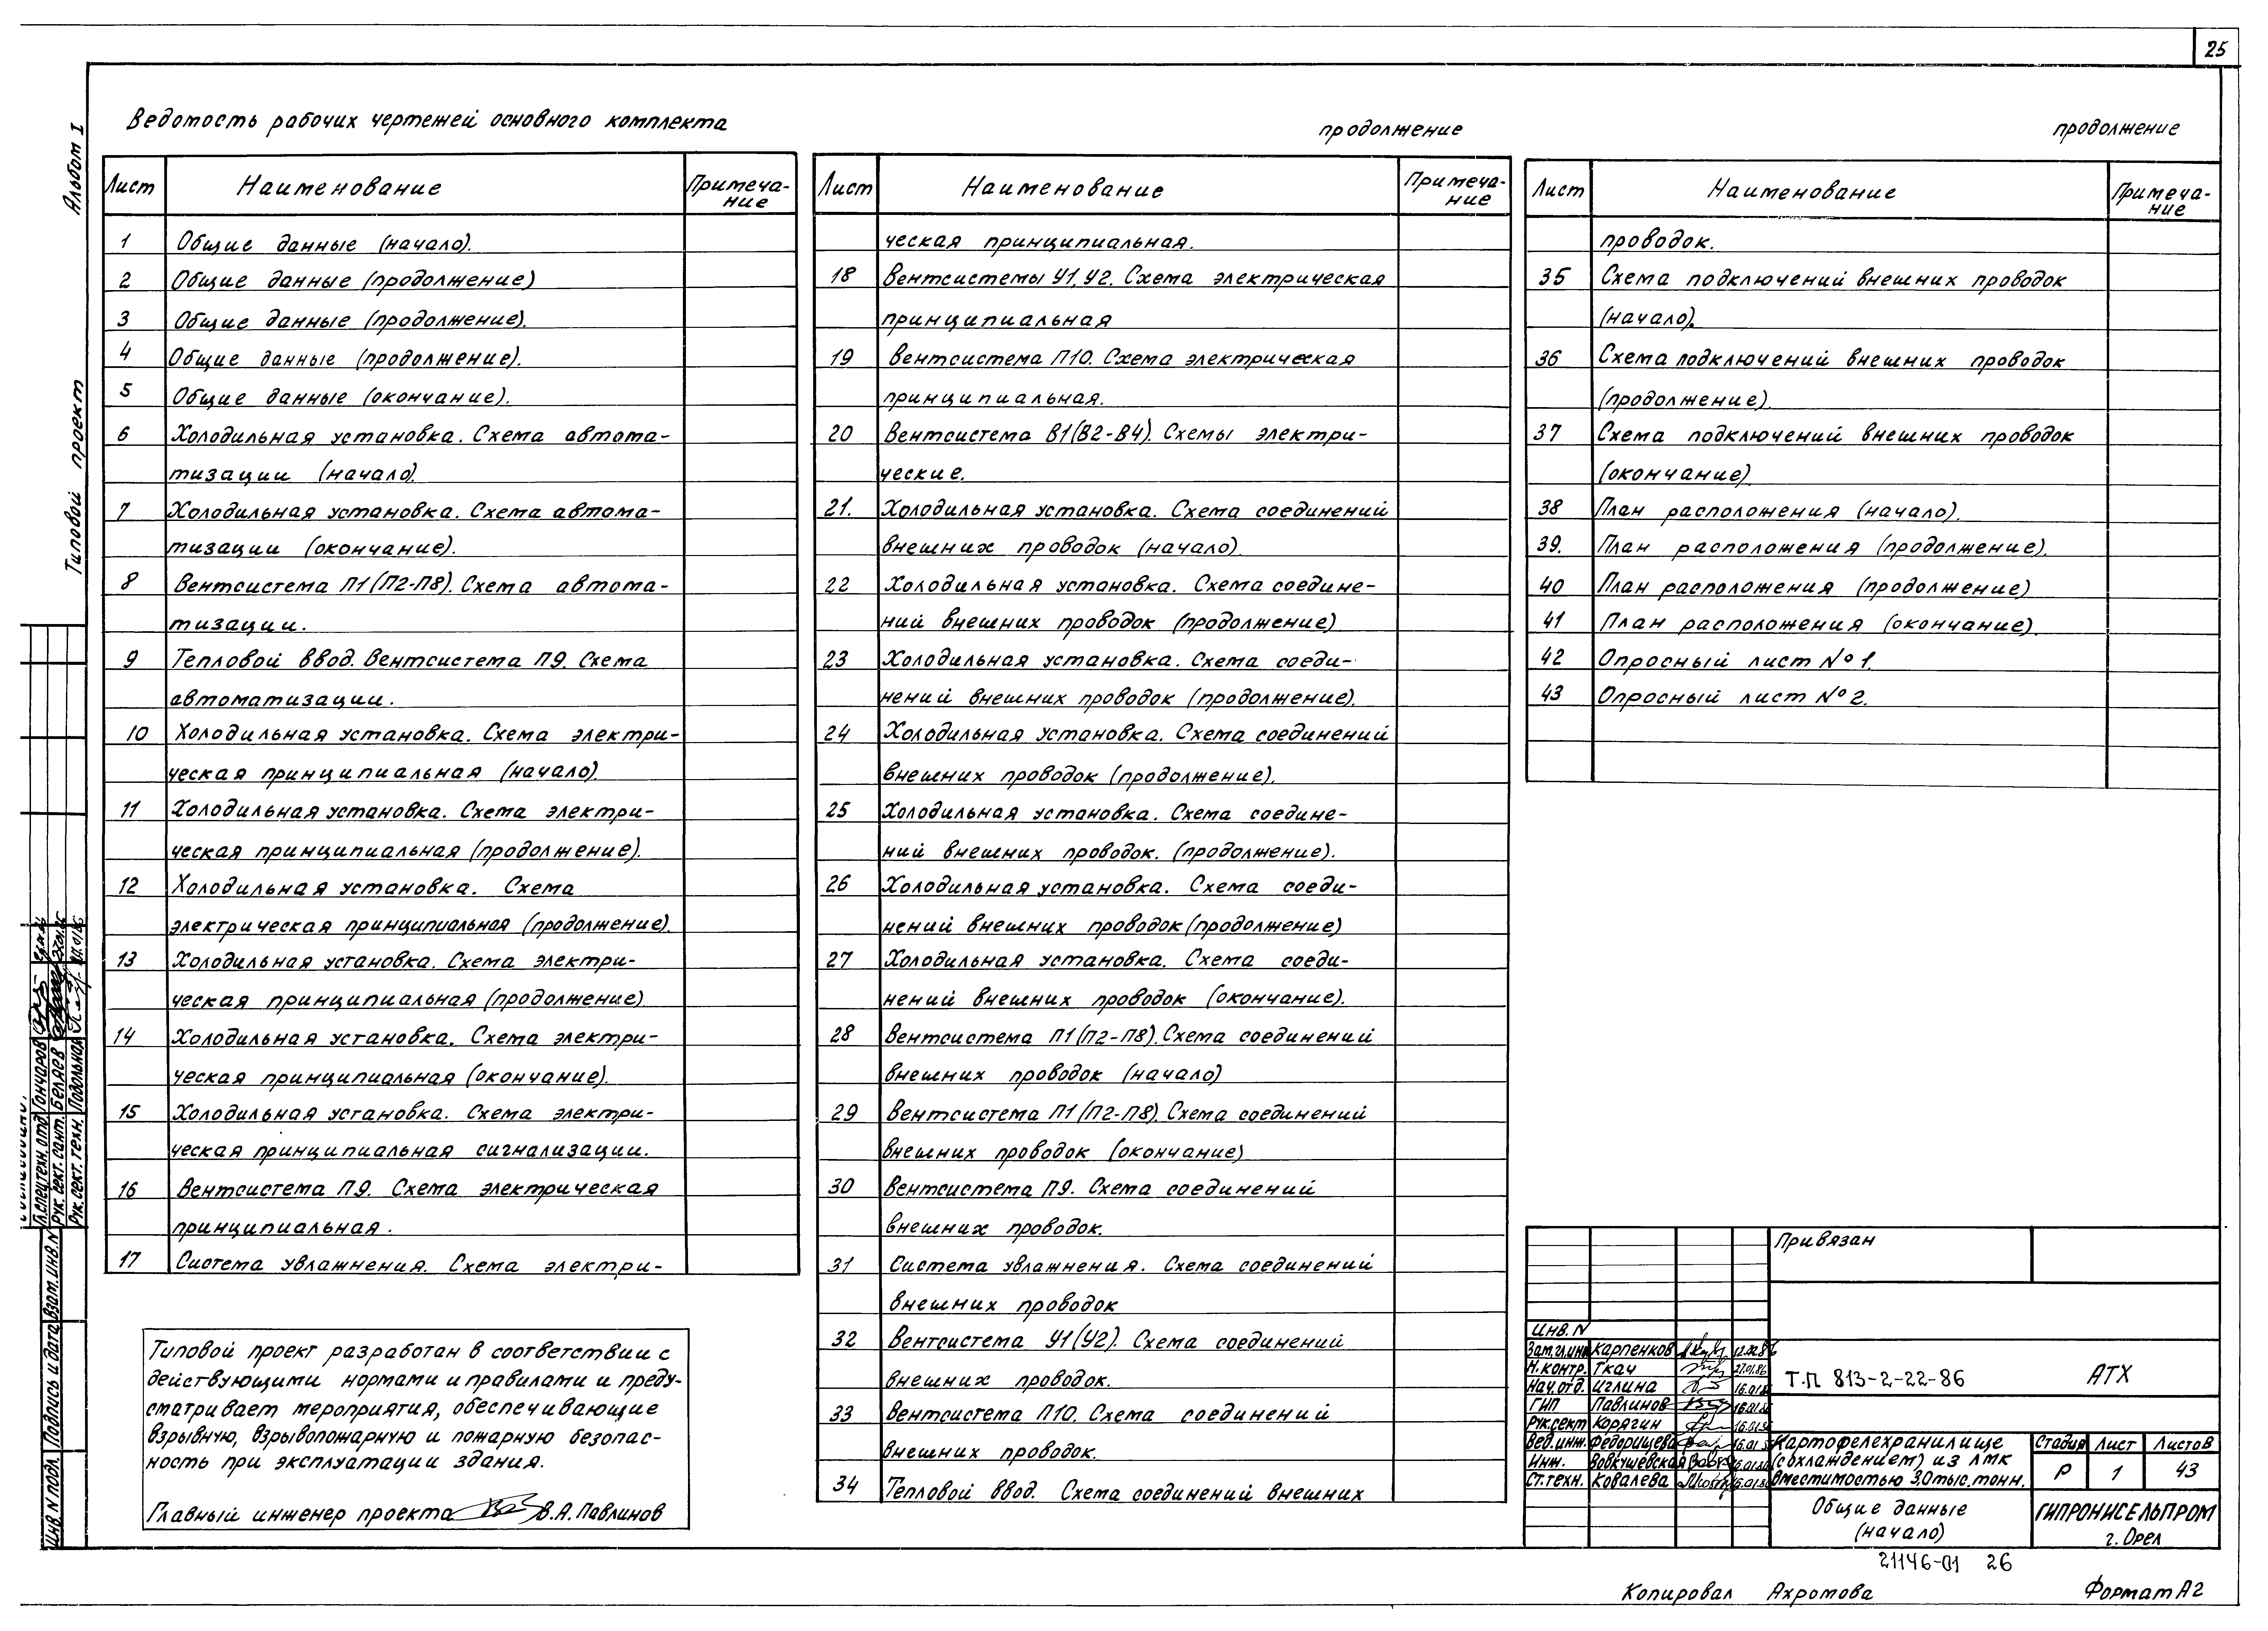 25
Альбом I
Типовой проект
Ведомость рабочих чертежей основного комплекта
Лист Наименование Примеча-
ние
1 Общие данные (начало).
2 Общие данные (продолжение)
3 Общие данные (продолжение).
4 Общие данные (продолжение).
5 Общие данные (окончание).
6 Холодильная установка. Схема автома-
тизации (начало).
7 Холодильная установка. Схема автома-
тизации (окончание).
8 Вентсистема П1 (П2-П8). Схема автома-
тизации.
9 Тепловой ввод. Вентсистема П9. Схема
автоматизации.
10 Холодильная установка. Схема электри-
ческая принципиальная (начало)
11 Холодильная установка. Схема электри-
ческая принципиальная (продолжение).
12 Холодильная установка. Схема
электрическая принципиальная (продолжение).
13 Холодильная установка. Схема электри-
ческая принципиальная (продолжение)
14 Холодильная установка. Схема электри-
ческая принципиальная (окончание).
15 Холодильная установка. Схема электри-
ческая принципиальная сигнализации.
16 Вентсистема П9. Схема электрическая
принципиальная.
17 Система увлажнения. Схема электри-
продолжение
Лист Наименование Примеча-
ние
ческая принципиальная.
18 Вентсистемы У1, У2. Схема электрическая
принципиальная
19 Вентсистема П10. Схема электрическая
принципиальная.
20 Вентсистема В1 (В2-В4). Схемы электри-
ческие.
21. Холодильная установка. Схема соединений
внешних проводок (начало).
22 Холодильная установка. Схема соедине-
ний внешних проводок (продолжение)
23 Холодильная установка. Схема соеди-
нений внешних проводок (продолжение).
24 Холодильная установка. Схема соединений
внешних проводок (продолжение).
25 Холодильная установка. Схема соедине-
ний внешних проводок. (продолжение).
26 Холодильная установка. Схема соеди-
нений внешних проводок (продолжение)
27 Холодильная установка. Схема соеди-
нений внешних проводок (окончание).
28 Вентсистема П1 (П2-П8). Схема соединений
внешних проводок (начало)
29 Вентсистема П1 (П2-П8). Схема соединений
внешних проводок (окончание)
30 Вентсистема П9. Схема соединений
внешних проводок.
31 Система увлажнения. Схема соединений
внешних проводок
32 Вентсистема У1 (У2). Схема соединений
внешних проводок.
33 Вентсистема П10. Схема соединений
внешних проводок.
34 Тепловой ввод. Схема соединений внешних
продолжение
Лист Наименование Примеча-
ние
проводок.
35 Схема подключений внешних проводок
(начало).
36 Схема подключений внешних проводок
(продолжение).
37 Схема подключений внешних проводок
(окончание)
38 План расположения (начало).
39. План расположения (продолжение).
40 План расположения (продолжение)
41 План расположения (окончание).
42 Опросный лист № 1.
43 Опросный лист № 2.
Типовой проект разработан в соответствии с
действующими нормами и правилами и преду-
сматривает мероприятия, обеспечивающие
взрывную, взрывопожарную и пожарную безопас-
ность при эксплуатации здания.
Главный инженер проекта В.А. Павлинов
Гл.спец.техн.отд. Гончаров
Рук. сект. сант. Беляев
Рук. сект. техн. Подольная
Инв. N подл. Подпись и дата Взам.инв.N
Привязан
Инв. N
Зам.гл.инж Карпенков 12.02.86
Н.контр. Ткач 27.01.86
Нач.отд. Иглина 16.01.86
ГИП Павлинов 16.01.86
Рук.сект Корягин 16.01.86
Вед.инж. Федорищева 16.01
Инж. Вовкушевская 16.01.86
Ст.техн. Ковалева 16.01.86
Т.П 813-2-22-86 АТХ
Картофелехранилище
(с охлаждением) из ЛМК
вместимостью 3,0 тыс. тонн.
Стадия Лист Листов
Р 1 43
Общие данные
(начало)
ГИПРОНИСЕЛЬПРОМ
г. Орел
21146-01 26
Копировал Ахромова Формат А2